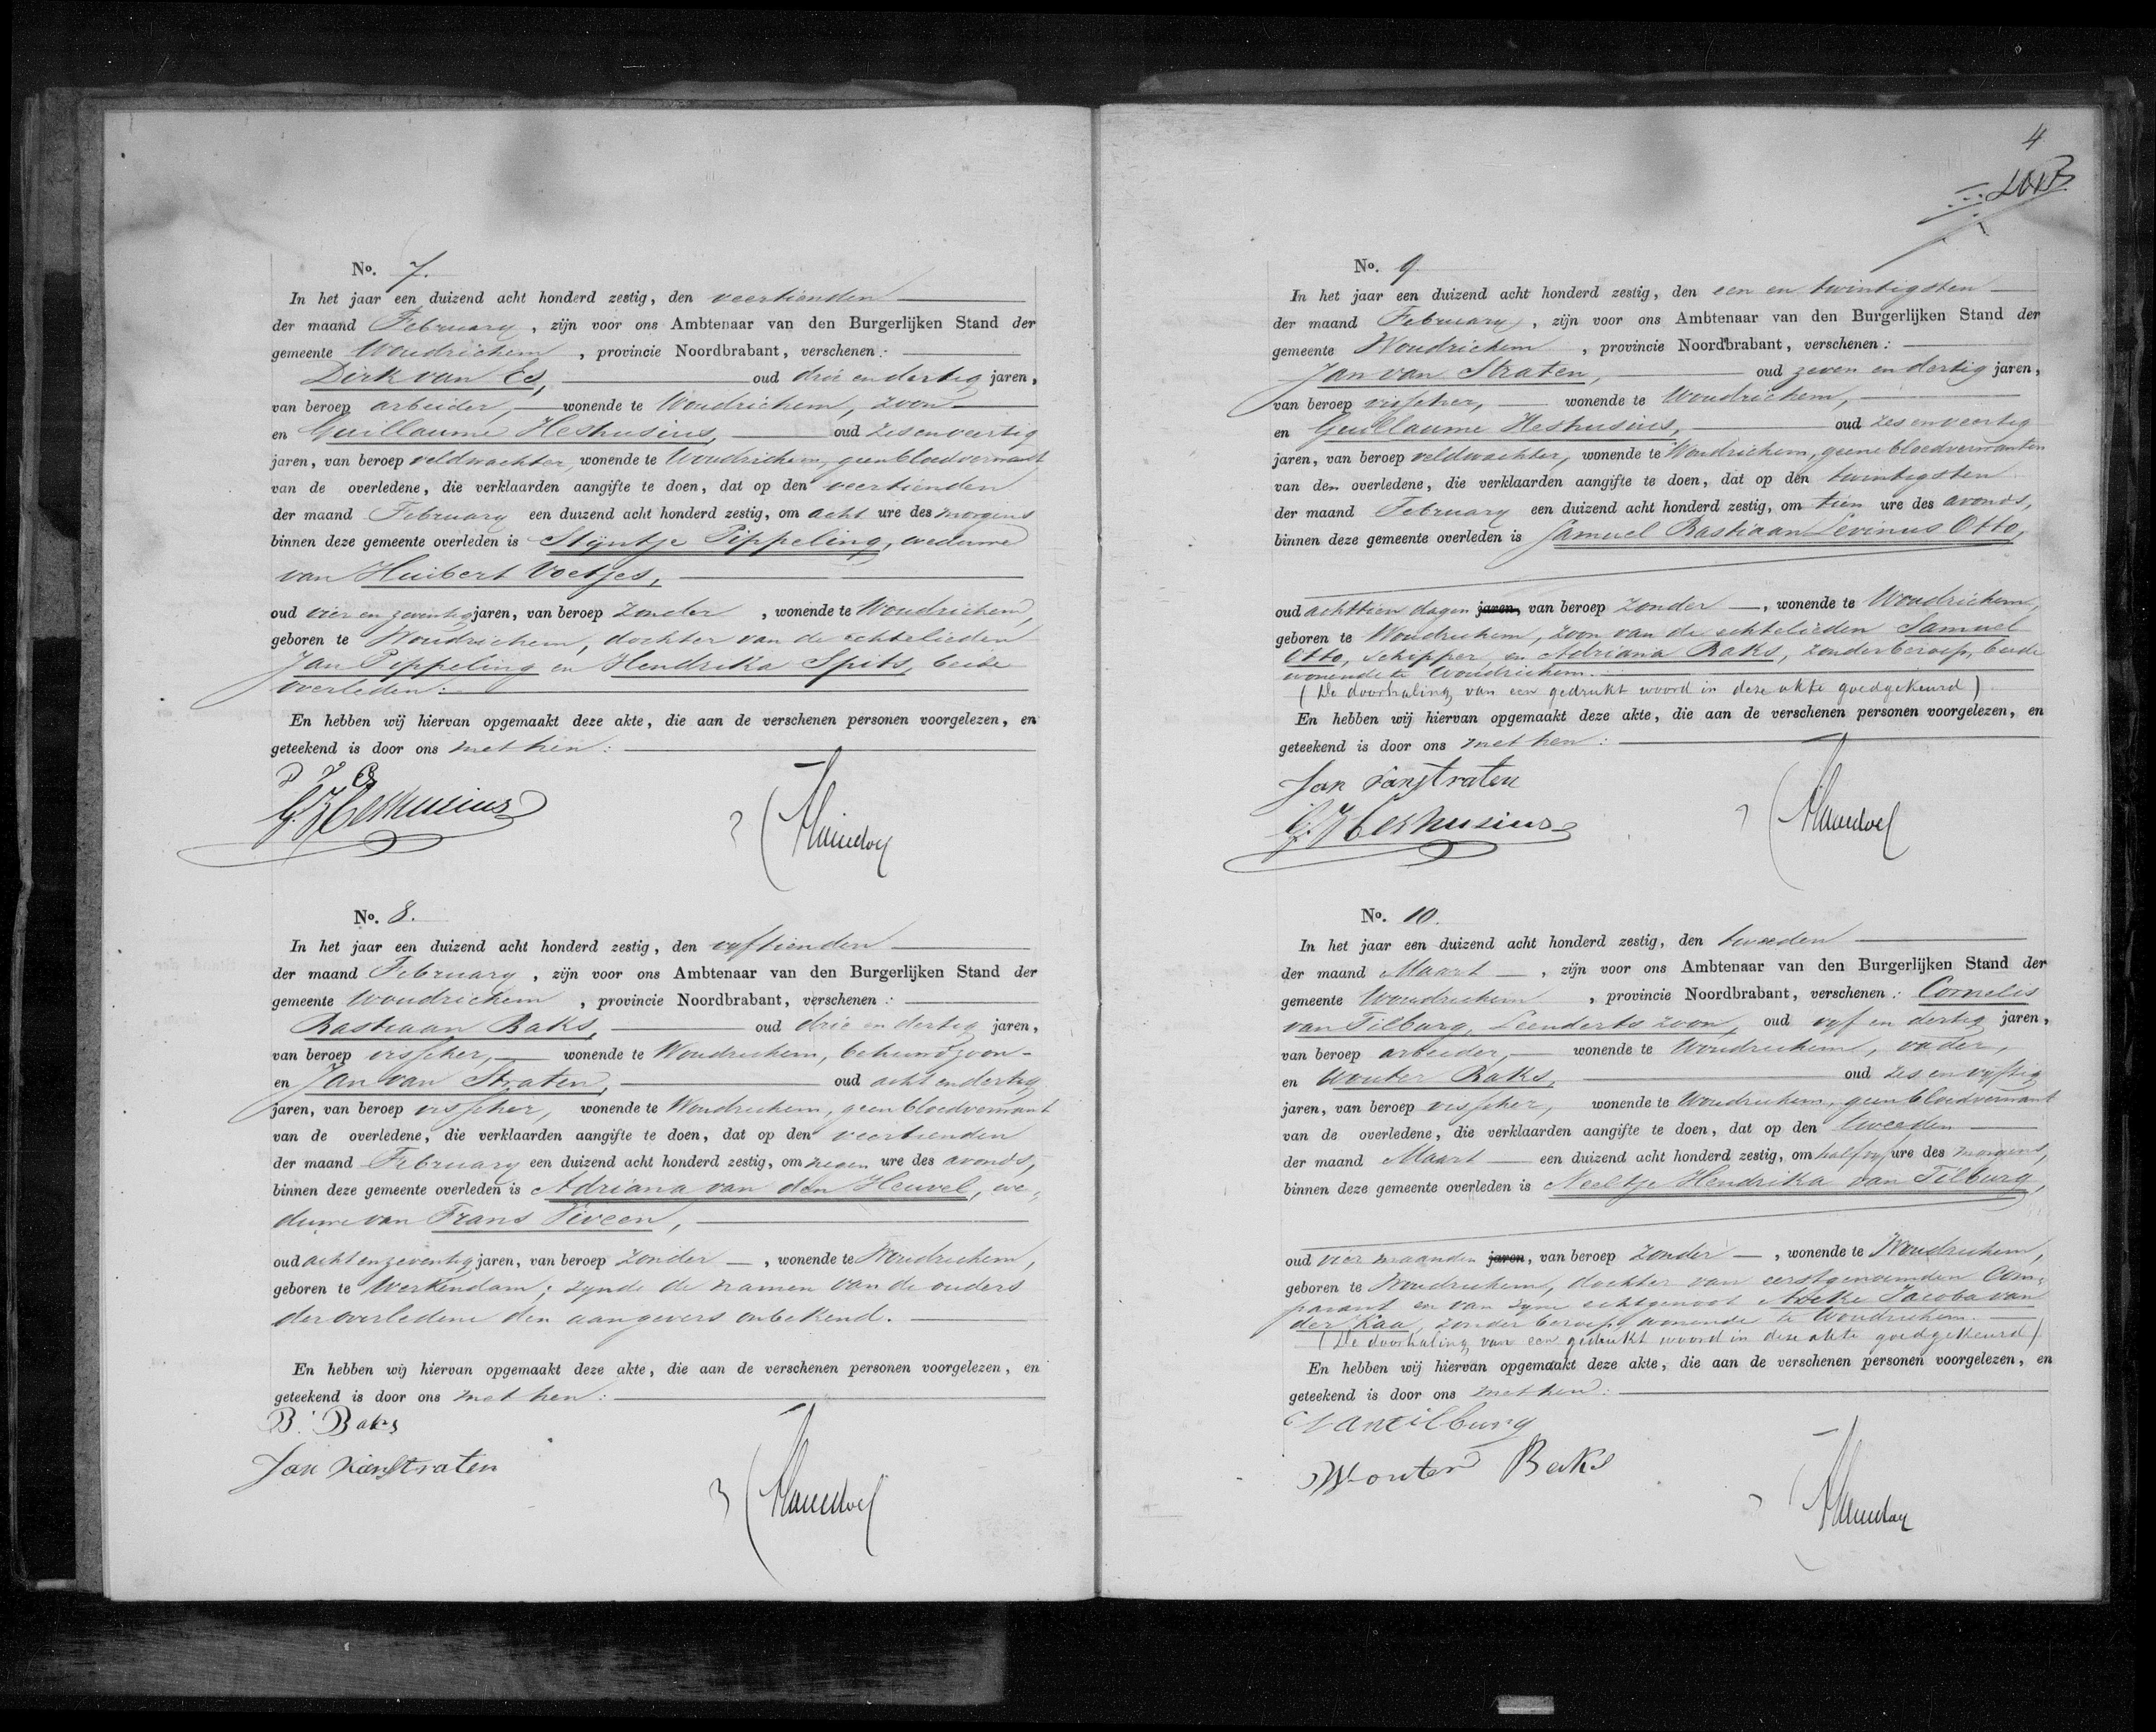 No. 7.
In het jaar een duizend acht honderd zestig, den veertienden
der maand February, zijn voor ons Ambtenaar van den Burgerlijken Stand der
gemeente Woudrichem, provincie Noordbrabant, verschenen:
Dirk van Es, oud drie en dertig jaren,
van beroep arbeider, wonende te Woudrichem, zoon
en Guillaume Heshusius, oud zes en veertig
jaren, van beroep veldwachter, wonende te Woudrichem, geen bloedverwant
van de overledene, die verklaarden aangifte te doen, dat op den veertienden
der maand February een duizend acht honderd zestig, om acht ure des morgens
binnen deze gemeente overleden is Stijntje Pippeling, weduwe
van Huibert Voetjes,
oud vier en zeventig jaren, van beroep zonder, wonende te Woudrichem,
geboren te Woudrichem, dochter van de echtelieden
Jan Pippeling en Hendrika Spits, beide
overleden.
En hebben wij hiervan opgemaakt deze akte, die aan de verschenen personen voorgelezen, en
geteekend is door ons met hen:
G. Heshusius
No. 8.
In het jaar een duizend acht honderd zestig, den vyftienden
der maand February, zijn voor ons Ambtenaar van den Burgerlijken Stand der
gemeente Woudrichem, provincie Noordbrabant, verschenen:
Bastiaan Baks, oud drie en dertig jaren,
van beroep visscher, wonende te Woudrichem, behuwdzoon
en Jan van Straten, oud acht en dertig
jaren, van beroep visscher, wonende te Woudrichem, geen bloedverwant
van de overledene, die verklaarden aangifte te doen, dat op den veertienden
der maand February een duizend acht honderd zestig, om negen ure des avonds,
binnen deze gemeente overleden is Adriana van den Heuvel, we-
duwe van Frans Viveen,
oud acht en zeventig jaren, van beroep zonder, wonende te Woudrichem,
geboren te Werkendam; zynde de namen van de ouders
der overledene den aangevers onbekend.
En hebben wij hiervan opgemaakt deze akte, die aan de verschenen personen voorgelezen, en
geteekend is door ons met hen:
B. Baks
Jan van Straten
4
No. 9.
In het jaar een duizend acht honderd zestig, den een en twintigsten
der maand February, zijn voor ons Ambtenaar van den Burgerlijken Stand der
gemeente Woudrichem, provincie Noordbrabant, verschenen:
Jan van Straten, oud zeven en dertig jaren,
van beroep visscher, wonende te Woudrichem,
en Guillaume Heshusius, oud zes en veertig
jaren, van beroep veldwachter, wonende te Woudrichem, geene bloedverwanten
van den overledene, die verklaarden aangifte te doen, dat op den twintigsten
der maand February een duizend acht honderd zestig, om tien ure des avonds,
binnen deze gemeente overleden is Samuel Bastiaan Levinus Otto,
oud achttien dagen jaren, van beroep zonder, wonende te Woudrichem,
geboren te Woudrichem, zoon van de echtelieden Samuel
Otto, schipper, en Adriana Baks, zonder beroep, beide
wonende te Woudrichem.
(De doorhaling van een gedrukt woord in deze akte goedgekeurd)
En hebben wij hiervan opgemaakt deze akte, die aan de verschenen personen voorgelezen, en
geteekend is door ons met hen:
Jan van Straten
G. Heshusius
No. 10.
In het jaar een duizend acht honderd zestig, den tweeden
der maand Maart, zijn voor ons Ambtenaar van den Burgerlijken Stand der
gemeente Woudrichem, provincie Noordbrabant, verschenen: Cornelis
van Tilburg, Leenderts zoon, oud vyf en dertig jaren,
van beroep arbeider, wonende te Woudrichem, vader,
en Wouter Baks, oud zes en vyftig
jaren, van beroep visscher, wonende te Woudrichem, geen bloedverwant
van de overledene, die verklaarden aangifte te doen, dat op den tweeden
der maand Maart een duizend acht honderd zestig, om half vyf ure des morgens,
binnen deze gemeente overleden is Neeltje Hendrika van Tilburg,
oud vier maanden jaren, van beroep zonder, wonende te Woudrichem,
geboren te Woudrichem, dochter van eerstgenoemden Com-
parant en van zyne echtgenoot Jacoba van
der Kaa, zonder beroep, wonende te Woudrichem.
(De doorhaling van een gedrukt woord in deze akte goedgekeurd)
En hebben wij hiervan opgemaakt deze akte, die aan de verschenen personen voorgelezen, en
geteekend is door ons met hen:
C van tilburg
Wouter Baks